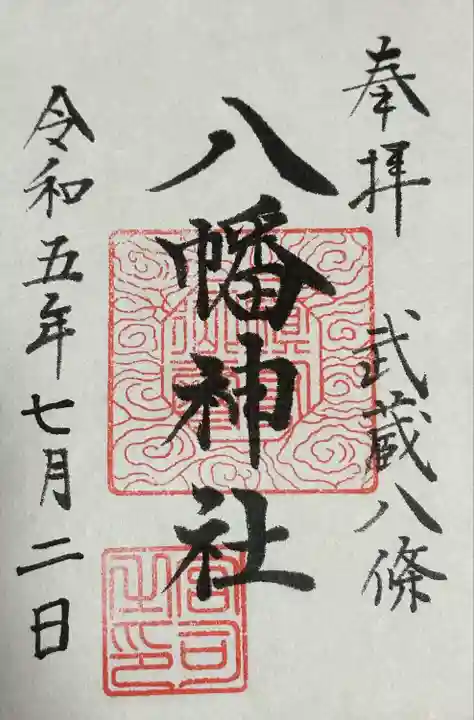 奉拝
武蔵八條
八幡神社
宮司之印
令和五年七月二日